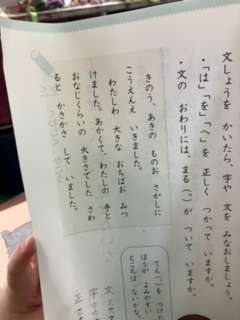 文しょうを かいたら、字や 文を みなおしましょう。
・「は」「を」「へ」を 正しく つかって いますか。
・文の おわりには、まる(。)が ついて いますか。
きのう、あきの ものお さがしに
こうえんえ いきました。
わたしわ 大きな おちばお みつ
けました。あかくて、わたしの 手と
おなじくらいの 大きさでした さわ
ると かさかさ して いました。
てん(、)を つけた
ほうが よみやすい
ところは ないかな。